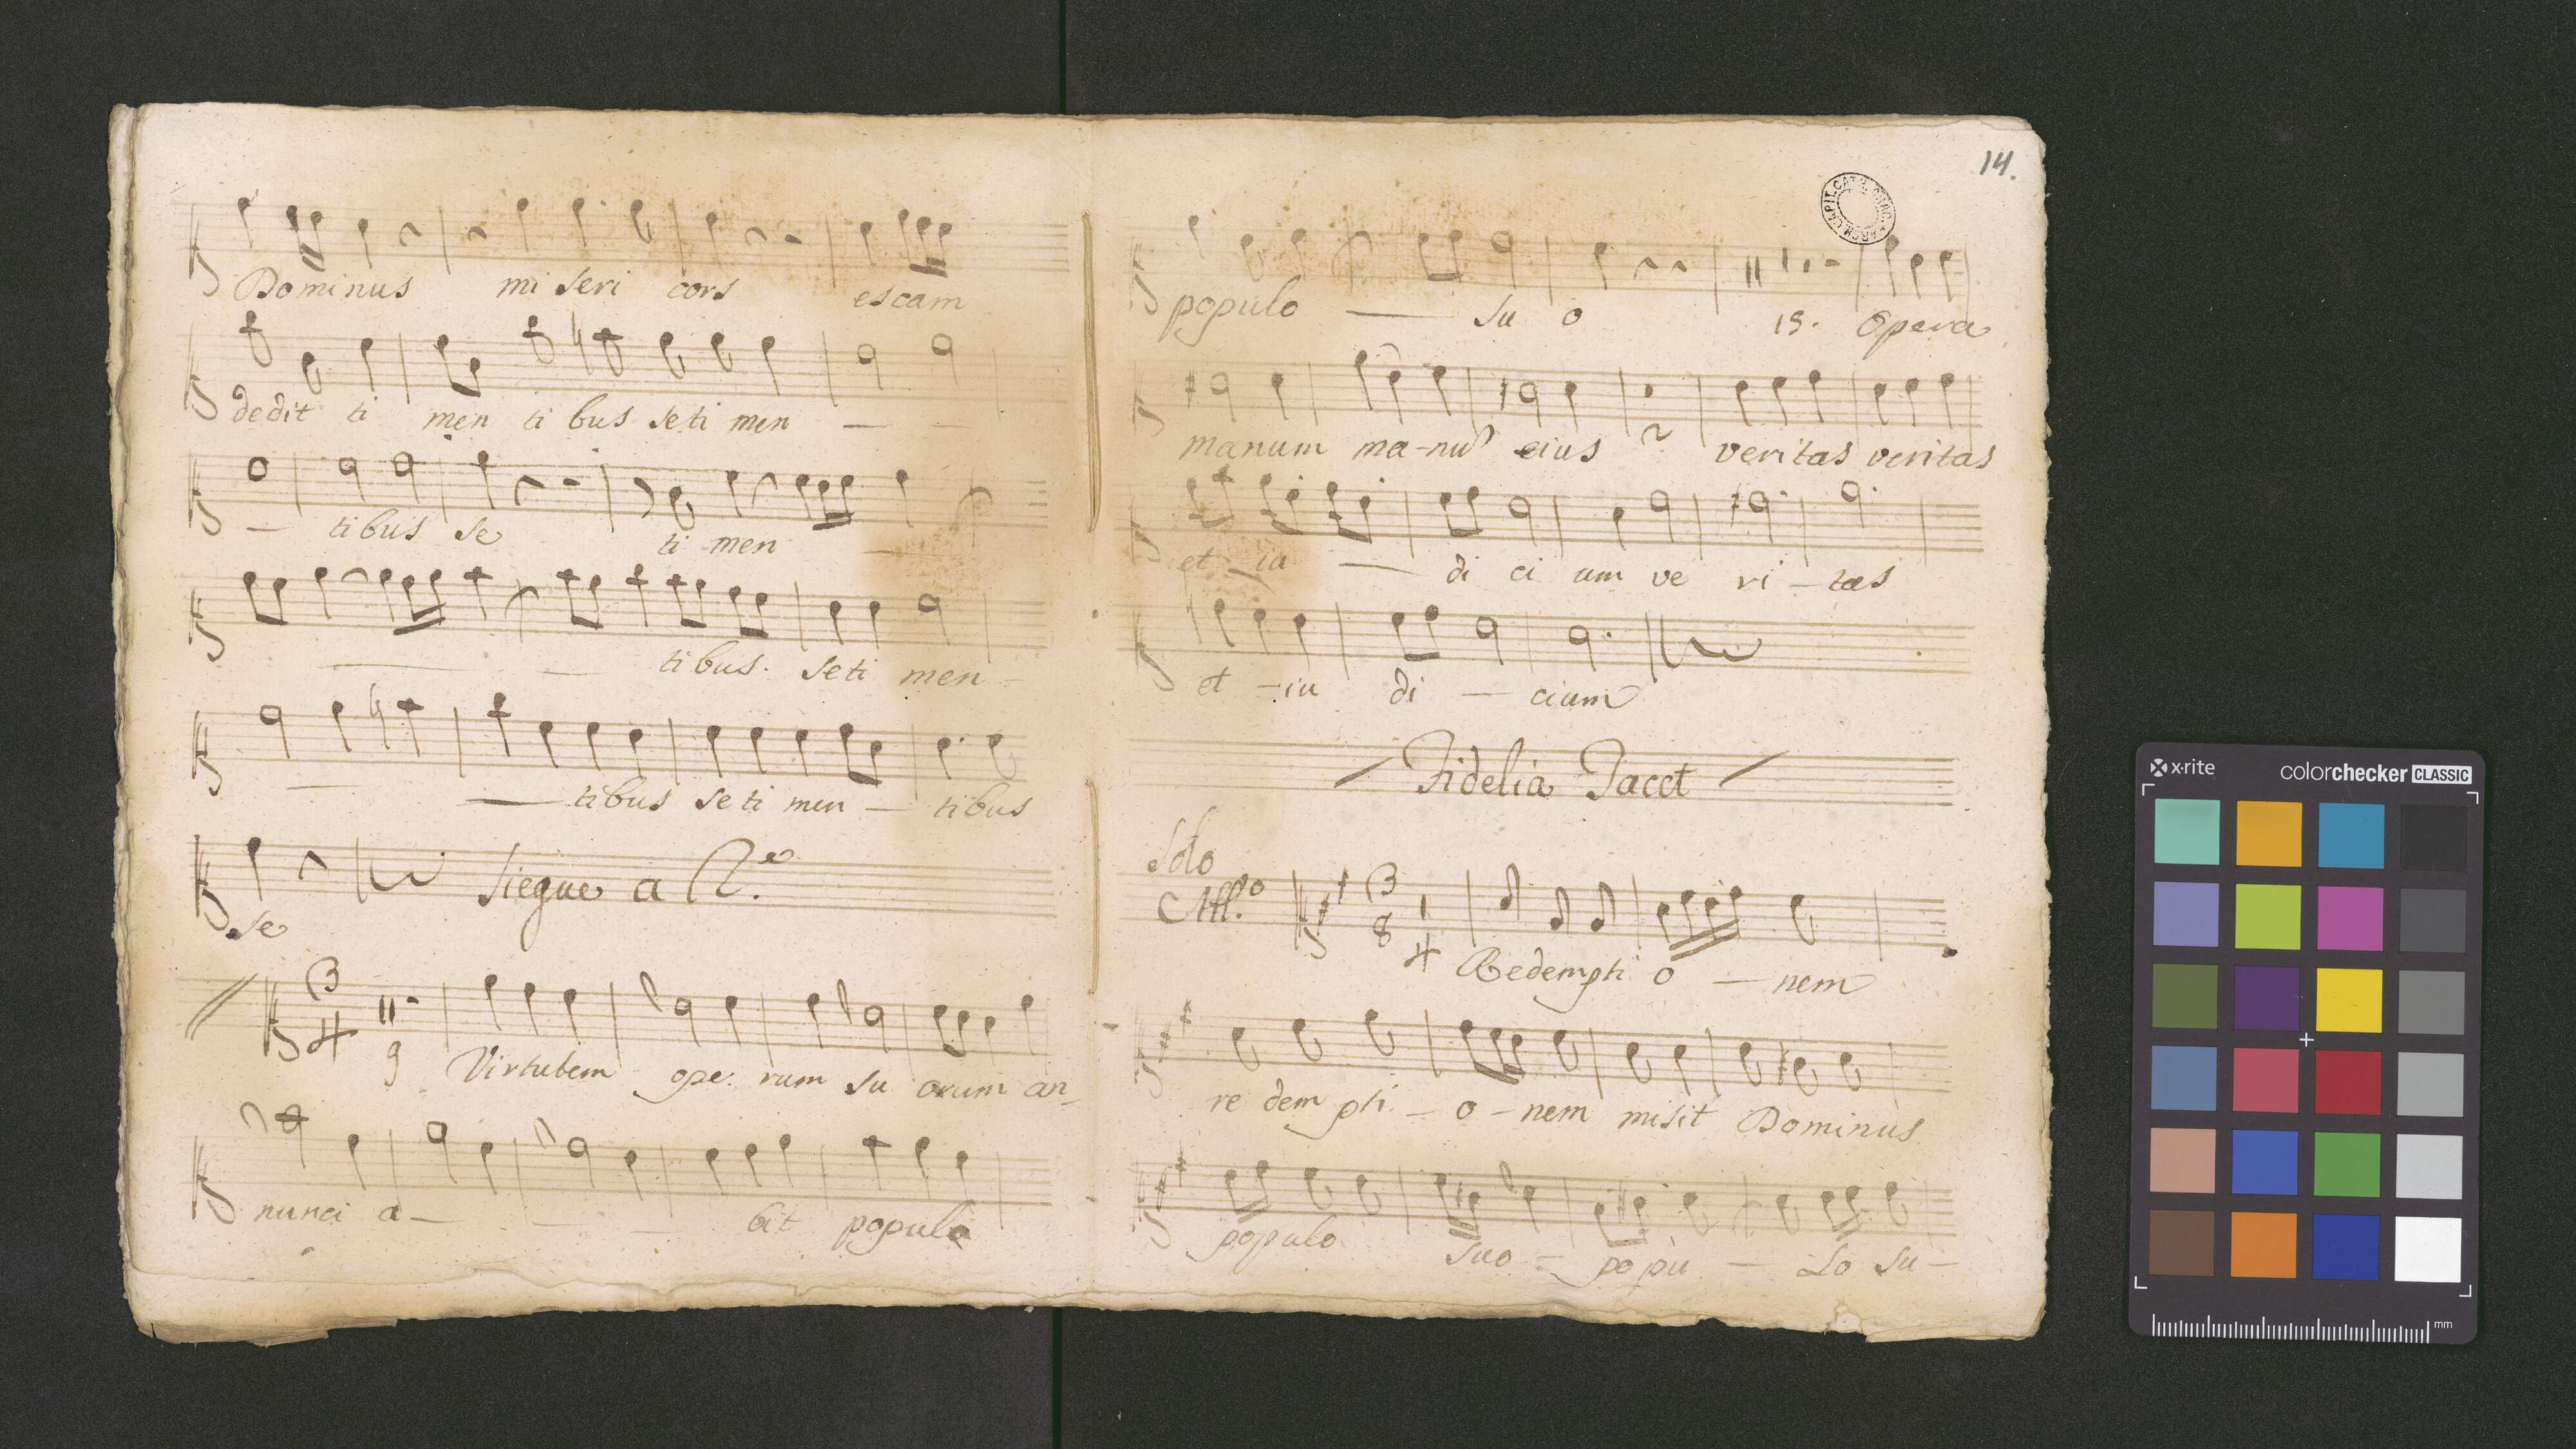 Dominus mi seri cors escam
dedit ti men ti bus se ti men — —
— tibus se ti men —
— — tibus. se ti men —
— — tibus se ti men — tibus
Siegue a
se
3
4
9 Virtutem ope. rum su orum an_
nunci a— — — bit populo
14.
populo — su o 15. Opera
manum ma-nuũ eius 2 veritas veritas
et _iu — di ci um ve ri — tas
et -iu di — cium
Fidelia Tacet
Solo
All.º 3
8 4 Redempti o — nem
re dem pti. — o — nem misit Dominus
populo suo = popu — Lo su —
x·rite colorchecker CLASSIC
mm